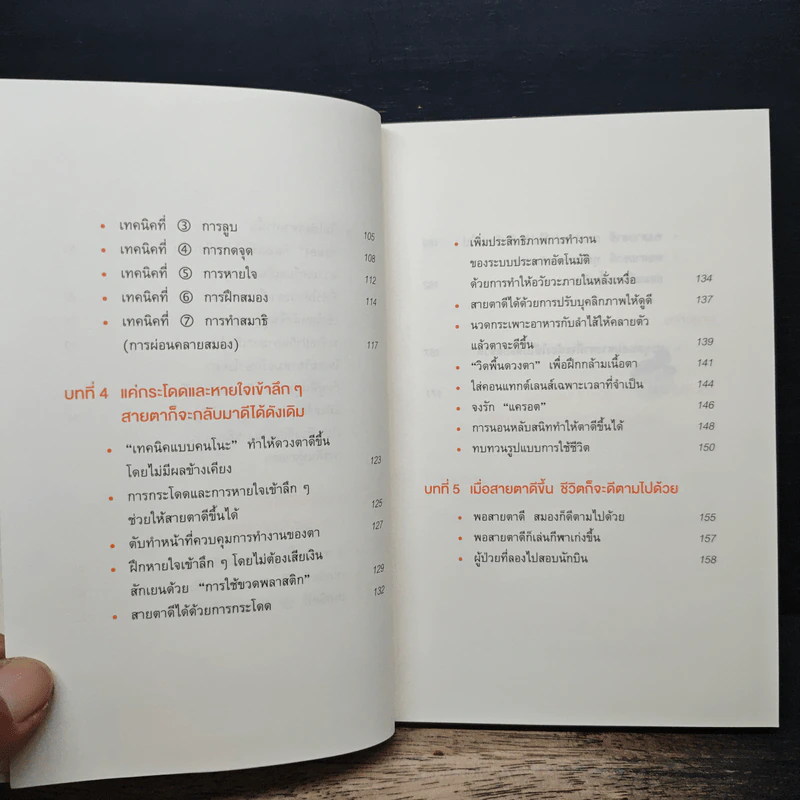 • เทคนิคที่ ③ การลูบ 105
• เทคนิคที่ ④ การกดจุด 108
• เทคนิคที่ ⑤ การหายใจ 112
• เทคนิคที่ ⑥ การฝึกสมอง 114
• เทคนิคที่ ⑦ การทำสมาธิ
(การผ่อนคลายสมอง) 117
บทที่ 4 แค่กระโดดและหายใจเข้าลึก ๆ
สายตาก็จะกลับมาดีได้ดังเดิม
• “เทคนิคแบบคนโนะ” ทำให้ดวงตาดีขึ้น
โดยไม่มีผลข้างเคียง 123
• การกระโดดและการหายใจเข้าลึก ๆ
ช่วยให้สายตาดีขึ้นได้ 125
• ตับทำหน้าที่ควบคุมการทำงานของตา 127
• ฝึกหายใจเข้าลึก ๆ โดยไม่ต้องเสียเงิน
สักเยนด้วย “การใช้ขวดพลาสติก” 129
• สายตาดีได้ด้วยการกระโดด 132
• เพิ่มประสิทธิภาพการทำงาน
ของระบบประสาทอัตโนมัติ
ด้วยการทำให้อวัยวะภายในหลั่งเหงื่อ 134
• สายตาดีได้ด้วยการปรับบุคลิกภาพให้ดูดี 137
• นวดกระเพาะอาหารกับลำไส้ให้คลายตัว
แล้วตาจะดีขึ้น 139
• “วิดพื้นดวงตา” เพื่อฝึกกล้ามเนื้อตา 141
• ใส่คอนแทกต์เลนส์เฉพาะเวลาที่จำเป็น 144
• จงรัก “แครอต” 146
• การนอนหลับสนิททำให้ตาดีขึ้นได้ 148
• ทบทวนรูปแบบการใช้ชีวิต 150
บทที่ 5 เมื่อสายตาดีขึ้น ชีวิตก็จะดีตามไปด้วย
• พอสายตาดี สมองก็ดีตามไปด้วย 155
• พอสายตาดีก็เล่นกีฬาเก่งขึ้น 157
• ผู้ป่วยที่ลองไปสอบนักบิน 158